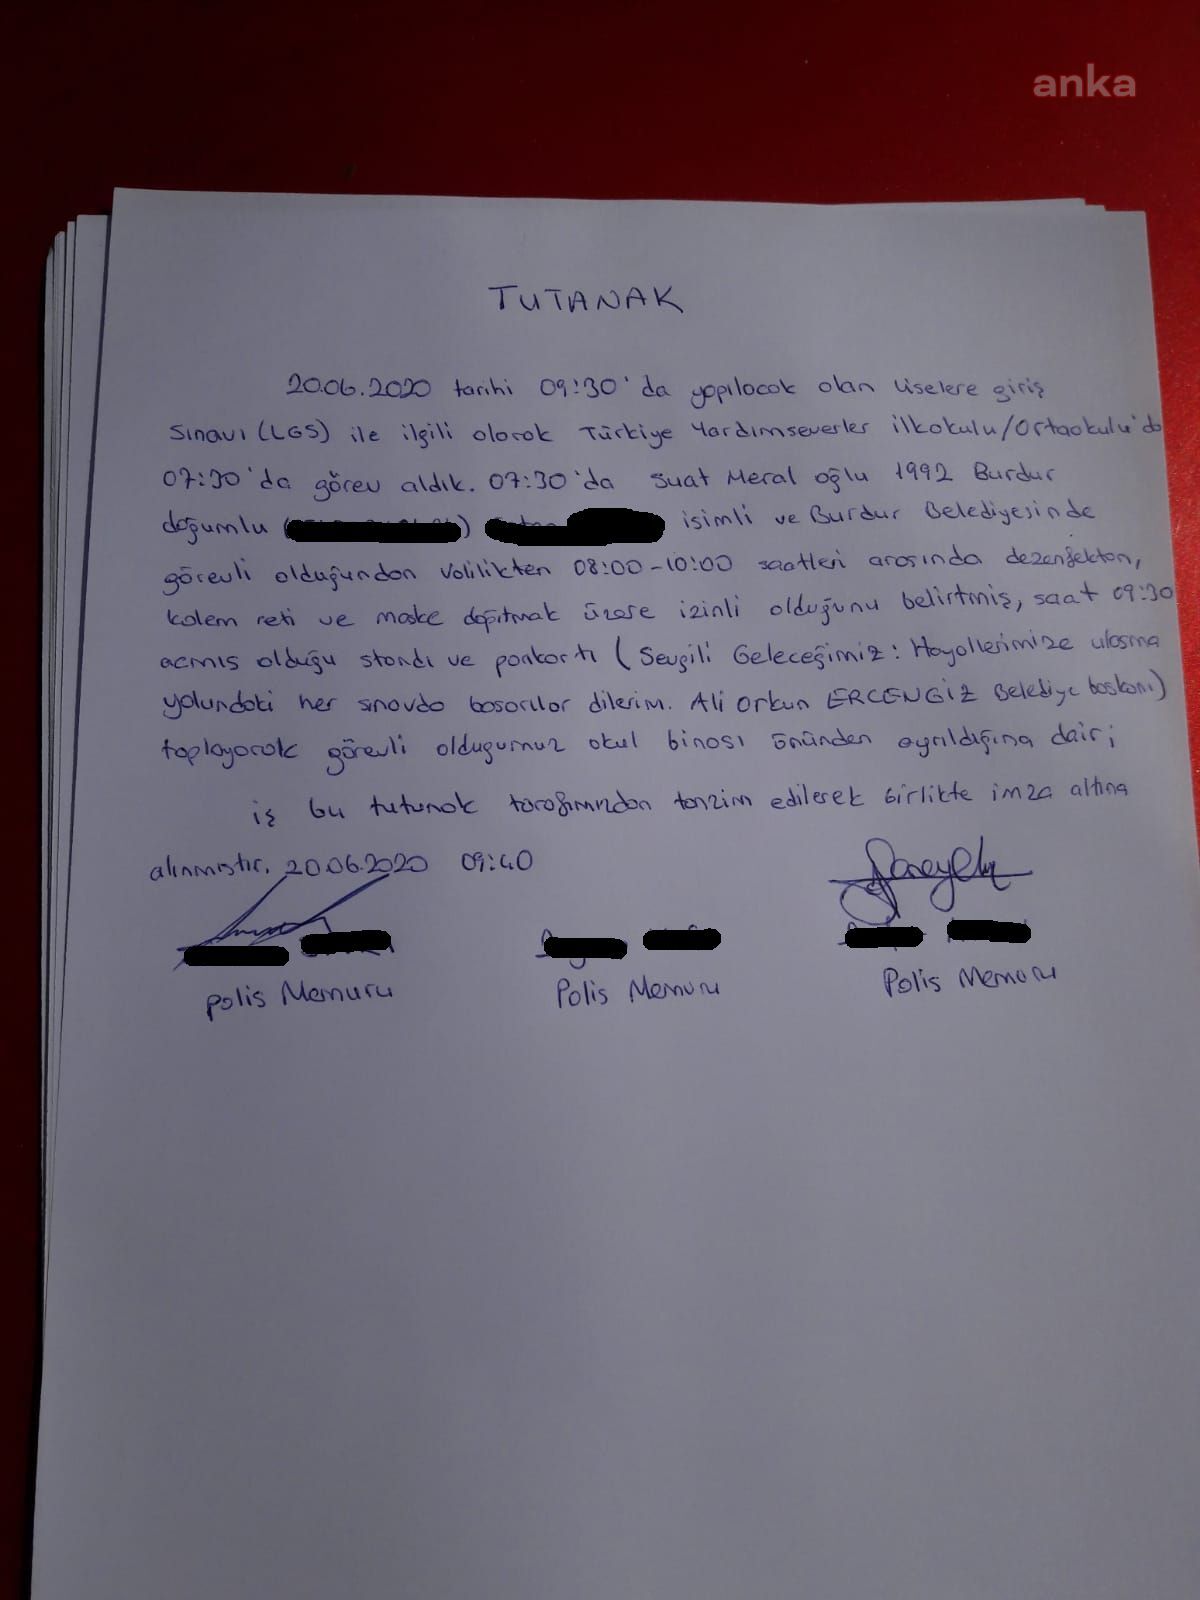 anka
TUTANAK
20.06.2020 tarihi 09:30'da yapılacak olan Liselere giriş
Sınavı (LGS) ile ilgili olarak Türkiye Yardımseverler ilkokulu/Ortaokulu'da
07:30'da görev aldık. 07:30'da Suat Meral oğlu 1992 Burdur
doğumlu ( ) isimli ve Burdur Belediyesinde
görevli olduğundan Valilikten 08:00-10:00 saatleri arasında dezenfektan,
kalem seti ve maske dağıtmak üzere izinli olduğunu belirtmiş, saat 09:30
açmış olduğu standı ve pankartı (Sevgili Geleceğimiz: Hayallerimize ulaşma
yolundaki her sınavda başarılar dilerim. Ali Orkun ERCENGİZ Belediye başkanı)
toplayarak görevli olduğumuz okul binası önünden ayrıldığına dair;
iş bu tutunak tarafımızdan tanzim edilerek birlikte imza altına
alınmıştır. 20.06.2020 09:40
Polis Memuru Polis Memuru Polis Memuru